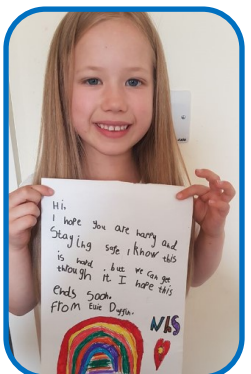 Hi,
I hope you are happy and
Staying safe I know this
is hard , but we can get
through it I hope this
ends soon.
From Evie Duggin.
NHS